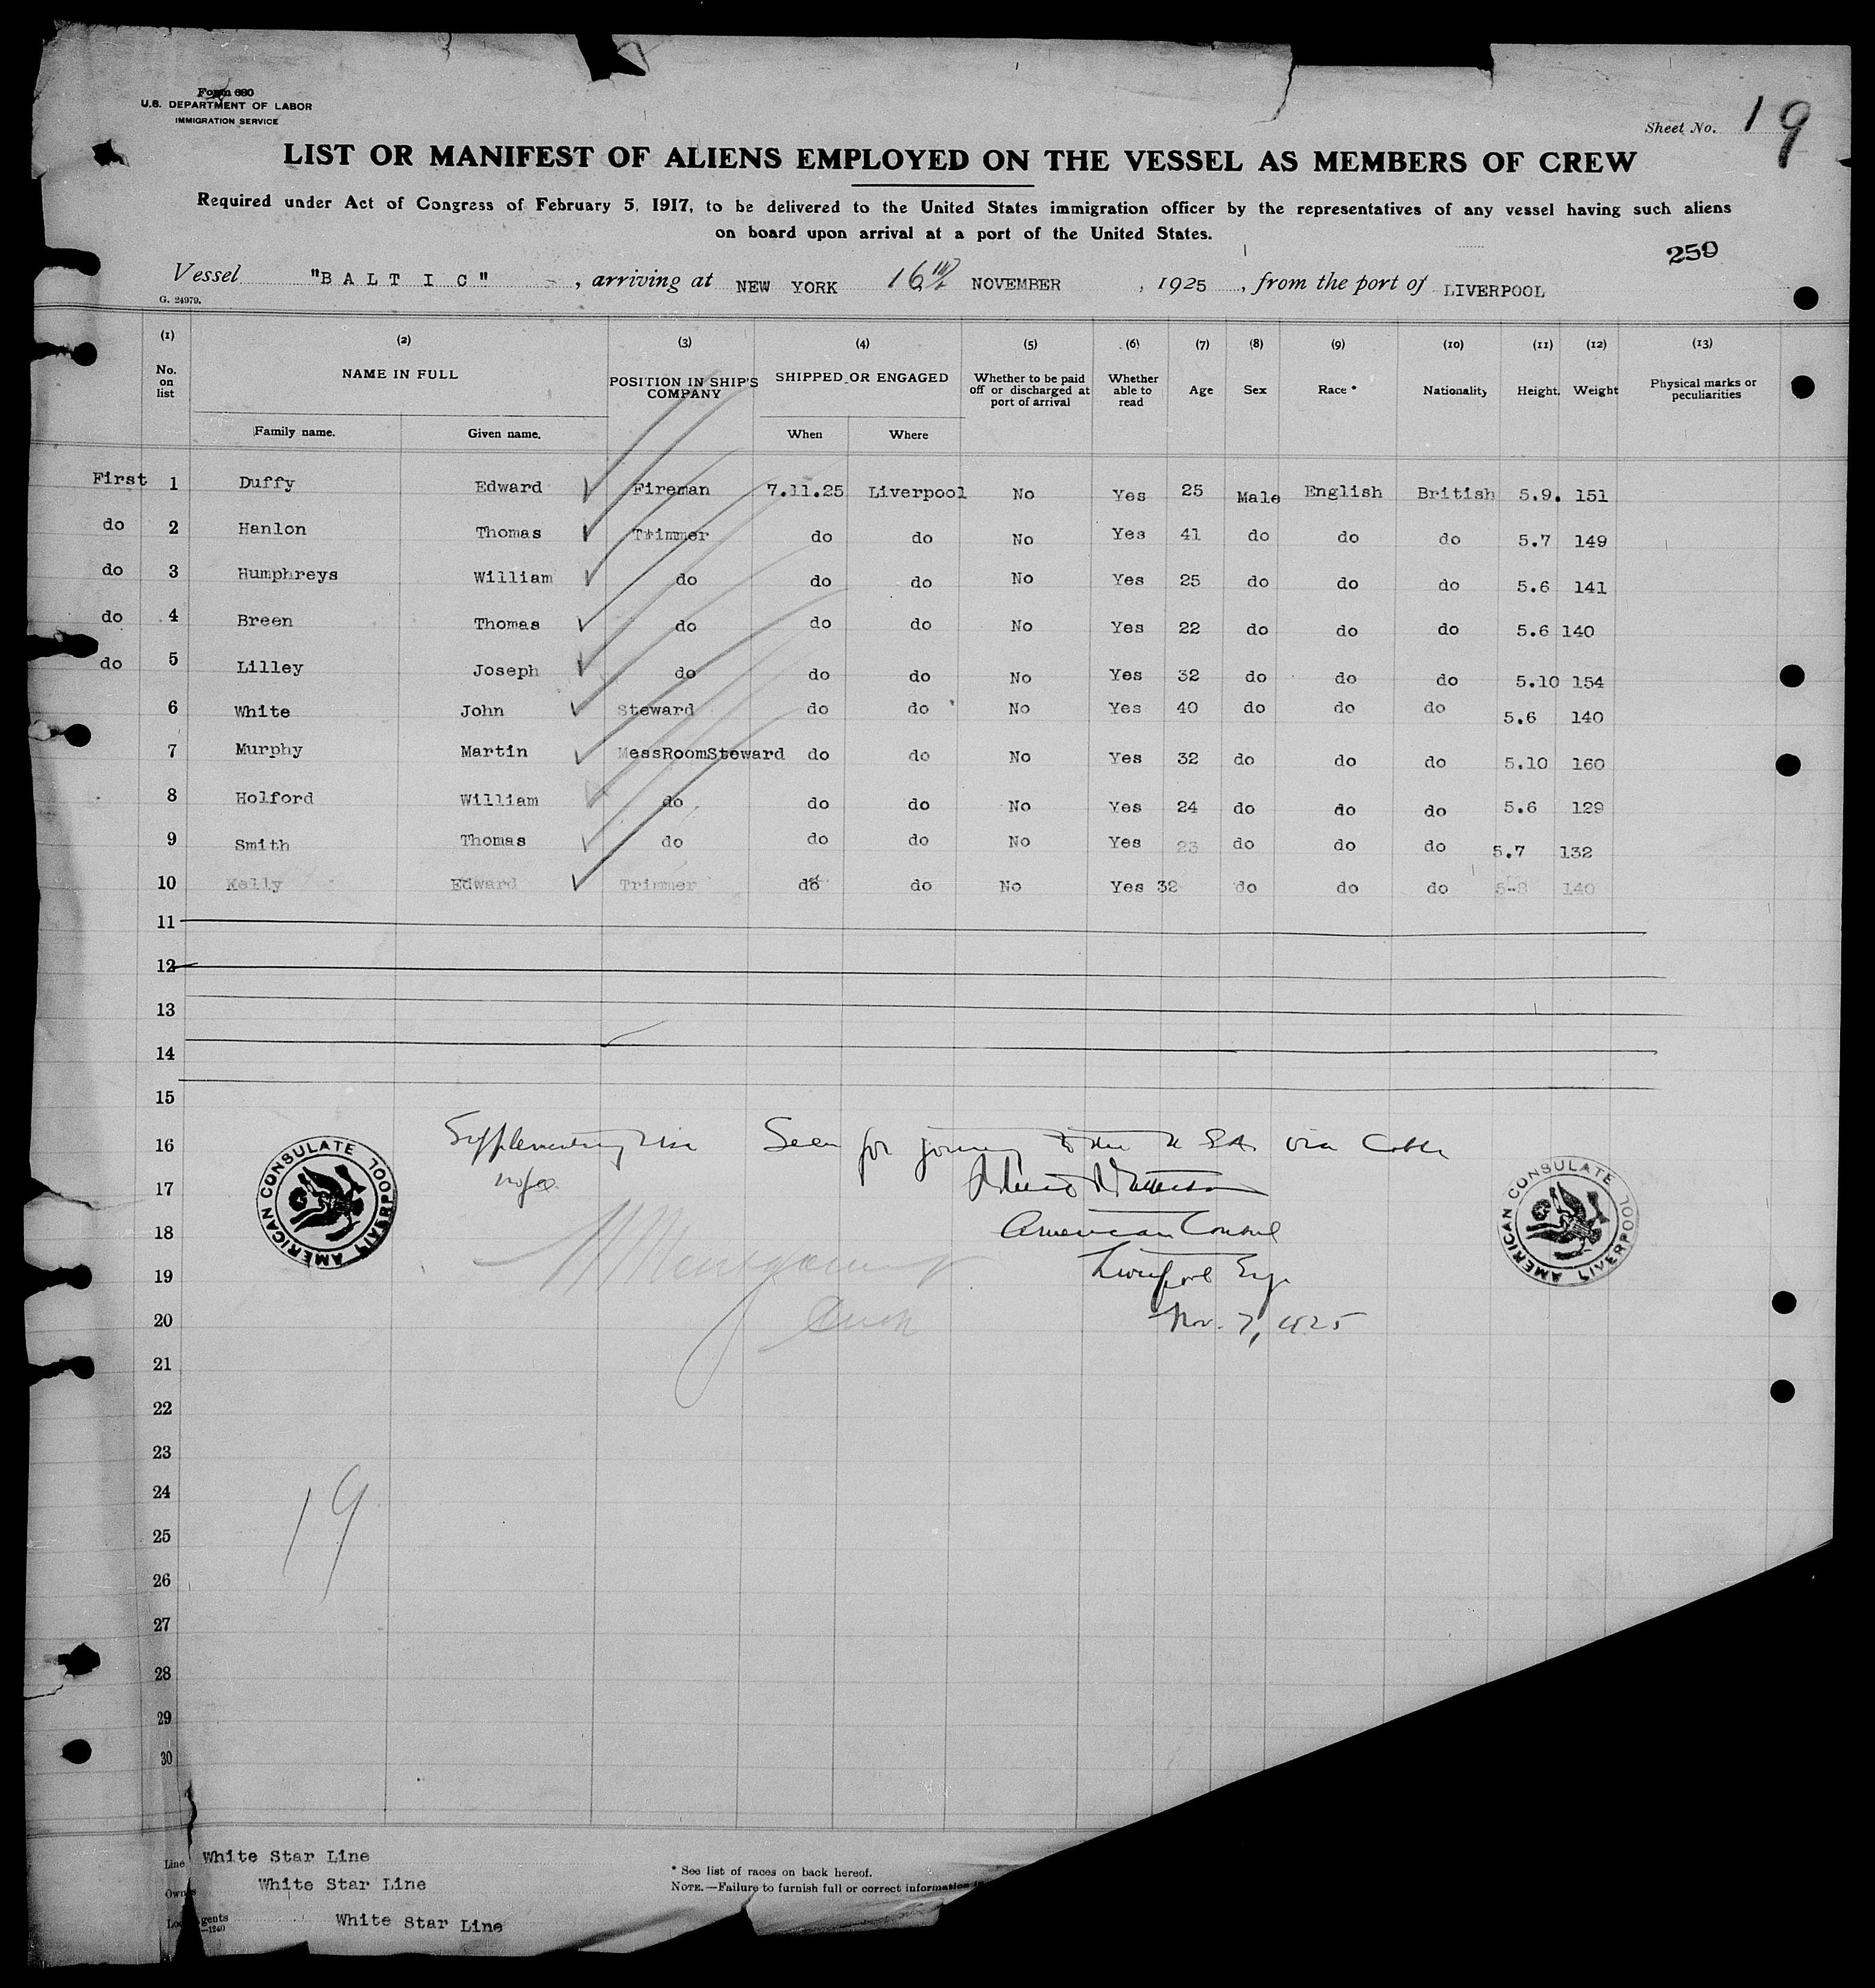 Form 680
U.S. DEPARTMENT OF LABOR
IMMIGRATION SERVICE
Sheet No. 19
LIST OR MANIFEST OF ALIENS EMPLOYED ON THE VESSEL AS MEMBERS OF CREW
Required under Act of Congress of February 5, 1917, to be delivered to the United States immigration officer by the representatives of any vessel having such aliens
on board upon arrival at a port of the United States.
259
Vessel "BALTIC", arriving at NEW YORK 16th NOVEMBER, 1925, from the port of LIVERPOOL
G. 24979.
(1) (2) (3) (4) (5) (6) (7) (8) (9) (10) (11) (12) (13)
No. on list NAME IN FULL POSITION IN SHIP'S COMPANY SHIPPED OR ENGAGED Whether to be paid off or discharged at port of arrival Whether able to read Age Sex Race * Nationality Height. Weight Physical marks or peculiarities
Family name. Given name. When Where
First 1 Duffy Edward Fireman 7.11.25 Liverpool No Yes 25 Male English British 5.9. 151
do 2 Hanlon Thomas Trimmer do do No Yes 41 do do do 5.7 149
do 3 Humphreys William do do do No Yes 25 do do do 5.6 141
do 4 Breen Thomas do do do No Yes 22 do do do 5.6 140
do 5 Lilley Joseph do do do No Yes 32 do do do 5.10 154
6 White John Steward do do No Yes 40 do do do 5.6 140
7 Murphy Martin MessRoomSteward do do No Yes 32 do do do 5.10 160
8 Holford William do do do No Yes 24 do do do 5.6 129
9 Smith Thomas do do do No Yes 23 do do do 5.7 132
10 Kelly Edward Trimmer do do No Yes 32 do do do 5-8 140
11
12
13
14
15
16 Supplementary Visa Seen for journey to the U S A. via Cobh
17 no fee
18 American Consul
19 Liverpool Eng.
20 Nov. 7, 1925
AMERICAN CONSULATE LIVERPOOL
AMERICAN CONSULATE LIVERPOOL
21
22
23
24
19
25
26
27
28
29
30
Line White Star Line
Owners White Star Line
Local Agents White Star Line
* See list of races on back hereof.
NOTE.—Failure to furnish full or correct information